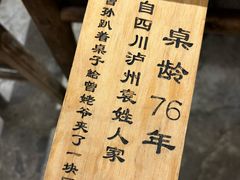 桌龄76年
自四川泸州袁姓人家
曾孙趴着桌子给曾姥爷夹了一块